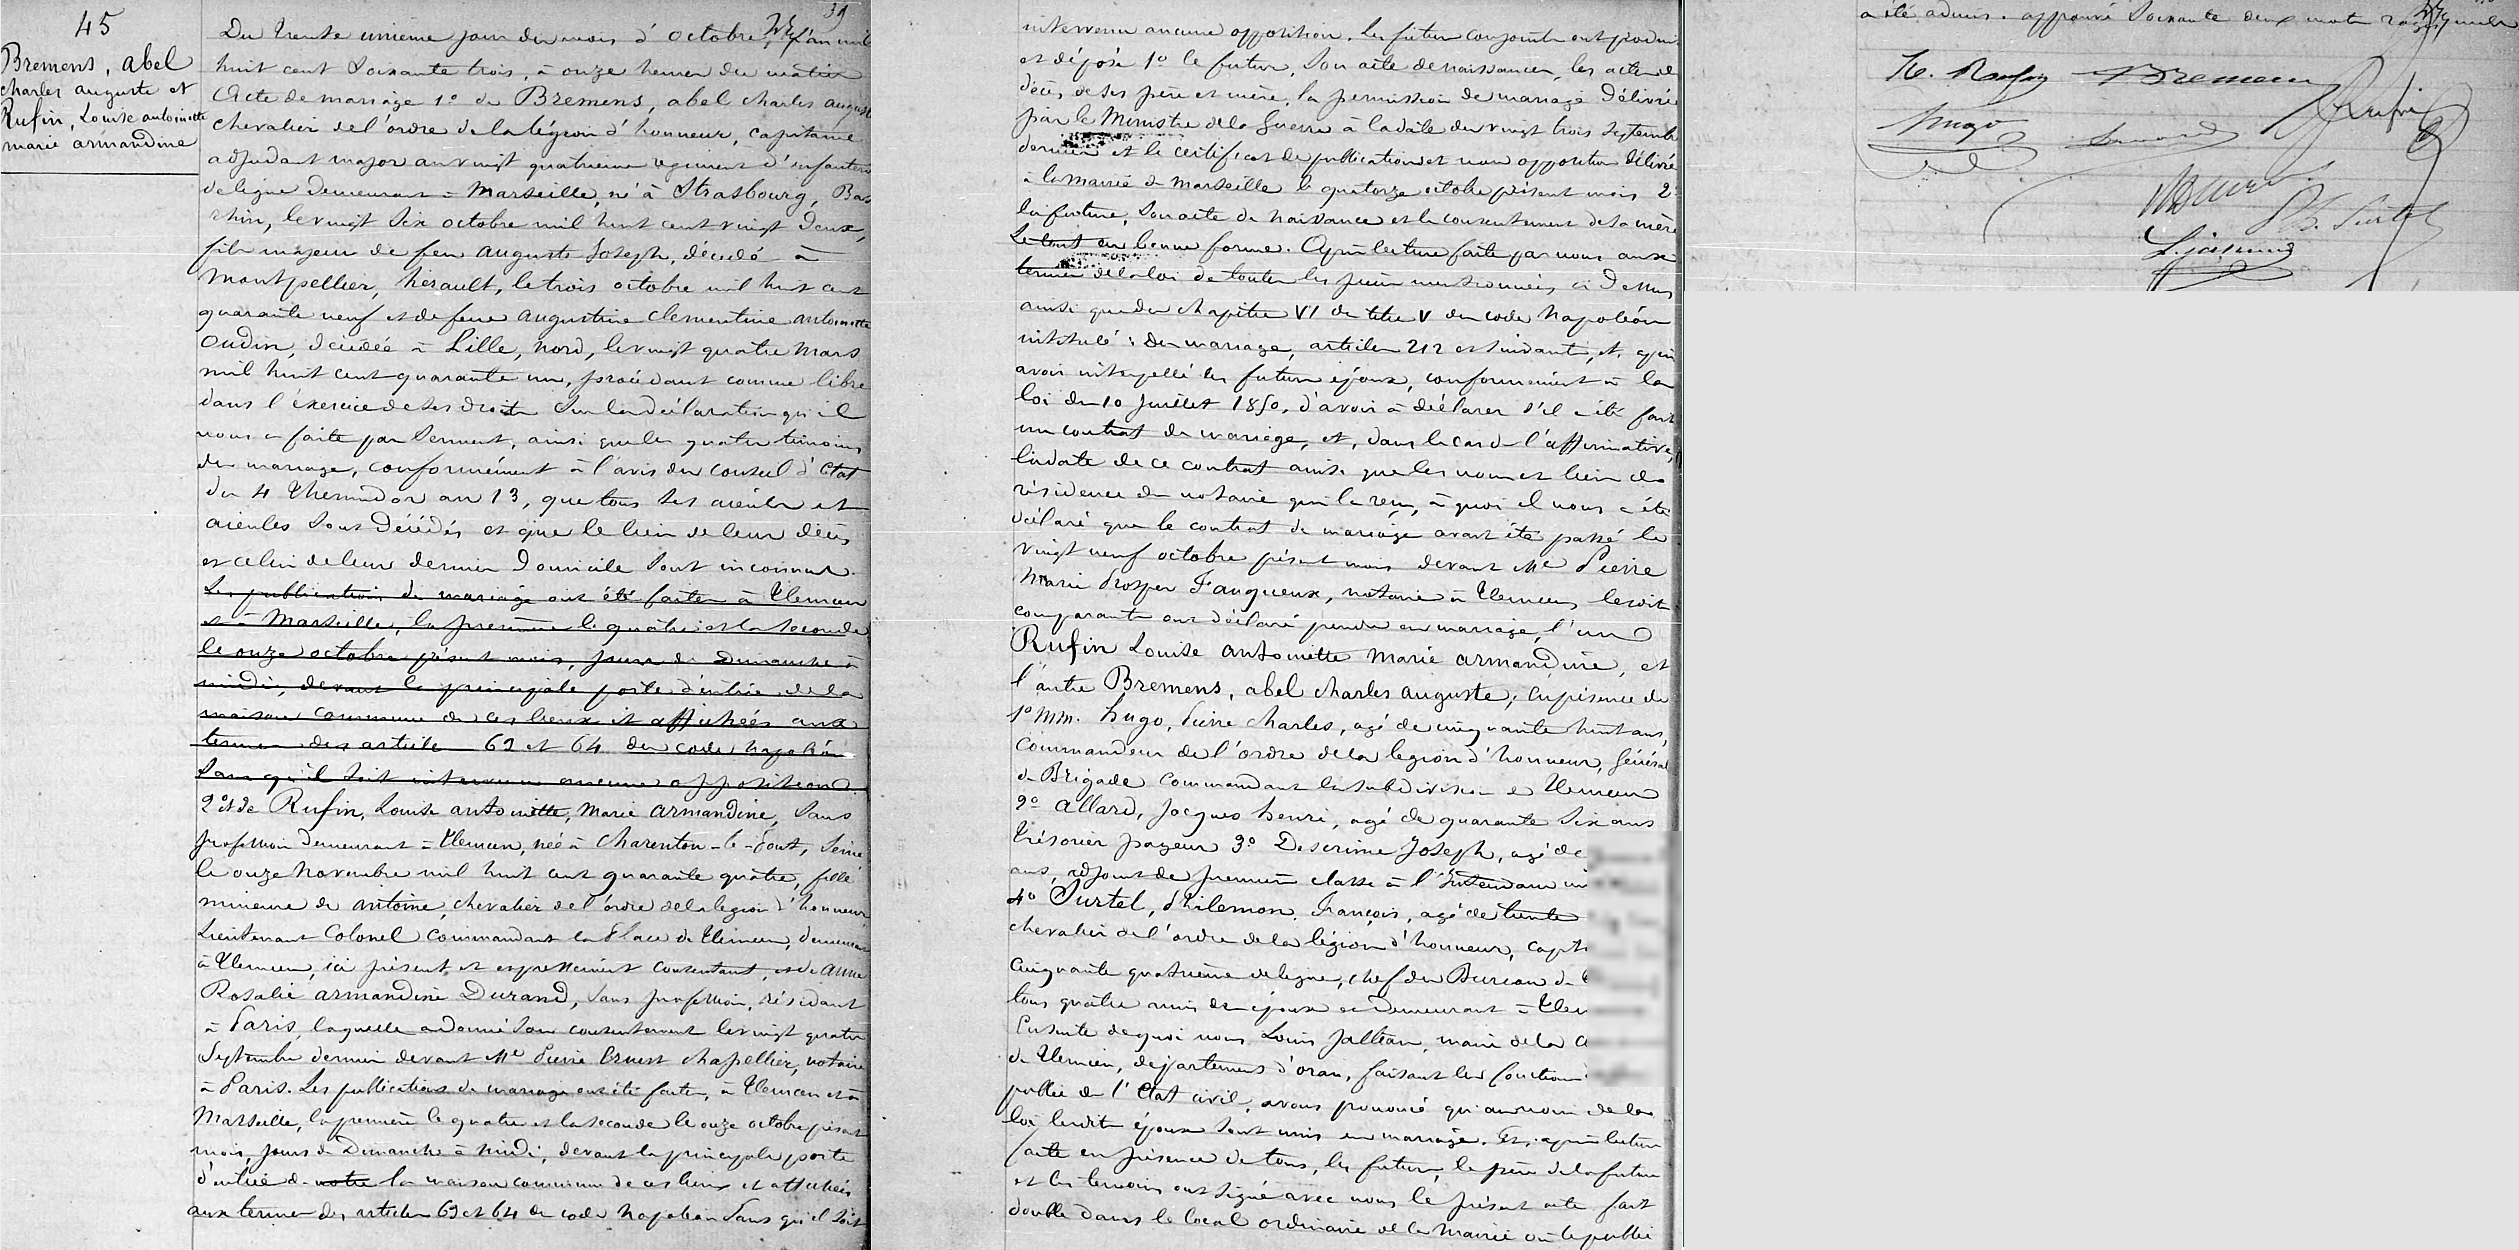 45
Bremens, abel
charles auguste et
Rufin, Louise antoinette
marie armandine
39
Du trente unième jour du mois d'octobre, l'an mil
huit cent soixante trois, à onze heures du matin
Acte de mariage 1º de Bremens, abel charles auguste
chevalier de l'ordre de la légion d'honneur, capitaine
adjudant major au vingt quatrième régiment d'infanterie
de ligne demeurant à Marseille, né à Strasbourg, Bas
rhin, le vingt six octobre mil huit cent vingt deux,
fils majeur de feu auguste Joseph, décédé à
Montpellier, hérault, le trois octobre mil huit cent
quarante neuf et de feue augustine clementine antoinette
Oudin, décédée à Lille, nord, le vingt quatre mars
mil huit cent quarante un, procédant comme libre
dans l'exercice de ses droits sur la déclaration qu'il
nous a faite par serment, ainsi que les quatre témoins
du mariage, conformément à l'avis du conseil d'état
du 4 thermidor an 13, que tous ses aïeuls et
aieules sont décédés et que le lieu de leur décès
et celui de leur dernier domicile sont inconnus.
Les publications de mariage ont été faites à Tlemcen
et à Marseille, la première le quatre et la seconde
le onze octobre présent mois, jours de Dimanche à
midi, devant la principale porte d'entrée de la
maison commune de ces lieux et affichées aux
termes des articles 63 et 64 du code Napoléon
sans qu'il soit intervenu aucune opposition.
2º et de Rufin, Louise antoinette, Marie armandine, sans
profession demeurant à Tlemcen, née à Charenton-le-Pont, Seine
le onze novembre mil huit cent quarante quatre, fille
mineure de antoine, chevalier de l'ordre de la légion d'honneur,
Lieutenant Colonel commandant la Place de Tlemcen, demeurant
à Tlemcen, ici présent et expressément consentant, et de anne
Rosalie armandine Durand, sans profession, résidant
à Paris, laquelle a donné son consentement le vingt quatre
Septembre dernier devant Me Pierre Ernest Chapellier, notaire
à Paris. Les publications de mariage ont été faites, à Tlemcen et à
Marseille, la première le quatre et la seconde le onze octobre présent
mois, jours de Dimanche à midi, devant la principale porte
d'entrée de notre la maison commune de ces lieux et affichées
aux termes des articles 63 et 64 du code Napoléon sans qu'il soit
intervenu aucune opposition. Les futurs conjoints ont produit
et déposé 1º le futur, son acte de naissance, les actes de
décès de ses père et mère, la permission de mariage délivrée
par le Ministre de la Guerre à la date du vingt trois septembre
dernier et le certificat de publication et non opposition délivré
à la mairie de Marseille le quatorze octobre présent mois 2º
la future, son acte de naissance et le consentement de sa mère
Le tout en bonne forme. Après lecture faite par nous aux
termes de la loi de toutes les pièces mentionnées ci dessus
ainsi que du chapitre VI du titre V du code Napoléon
intitulé : du mariage, articles 212 et suivants, et après
avoir interpellé les futurs époux, conformément à la
loi du 10 Juillet 1850, d'avoir à déclarer s'il a été fait
un contrat de mariage, et, dans le cas de l'affirmative,
la date de ce contrat ainsi que les nom et lieu de
résidence du notaire qui l'a reçu, à quoi il nous a été
déclaré que le contrat de mariage avait été passé le
vingt neuf octobre présent mois devant Me Pierre
Marie Prosper Fauqueux, notaire à Tlemcen, lesdits
comparants ont déclaré prendre en mariage, l'un
Rufin Louise antoinette Marie armandine, et
l'autre Bremens, abel charles auguste, en présence de
1º MM. hugo, Pierre charles, agé de cinquante huit ans,
commandeur de l'ordre de la légion d'honneur, Général
de Brigade commandant la subdivision de Tlemcen
2º Allard, Jacques henri, agé de quarante six ans
trésorier payeur 3º Descrime Joseph, agé de
ans, adjoint de première classe à l'Intendance
4º Purtel, Philemon, François, agé de trente
chevalier de l'ordre de la légion d'honneur, capit
cinquante quatrième de ligne, chef du Bureau de
tous quatre amis des époux et demeurant à Tlem
Ensuite de quoi nous Louis Jalteau, maire de la
de Tlemcen, département d'oran, faisant les fonctions
public de l'état civil, avons prononcé qu'au nom de la
loi lesdits époux sont unis en mariage. Et, après lecture
faite en présence de tous, les futurs, le père de la future
et les témoins ont signé avec nous le présent acte fait
double dans le local ordinaire de la Mairie où le public
a été admis. approuvé soixante deux mots rayés nuls
Bremens
Rufin
hugo